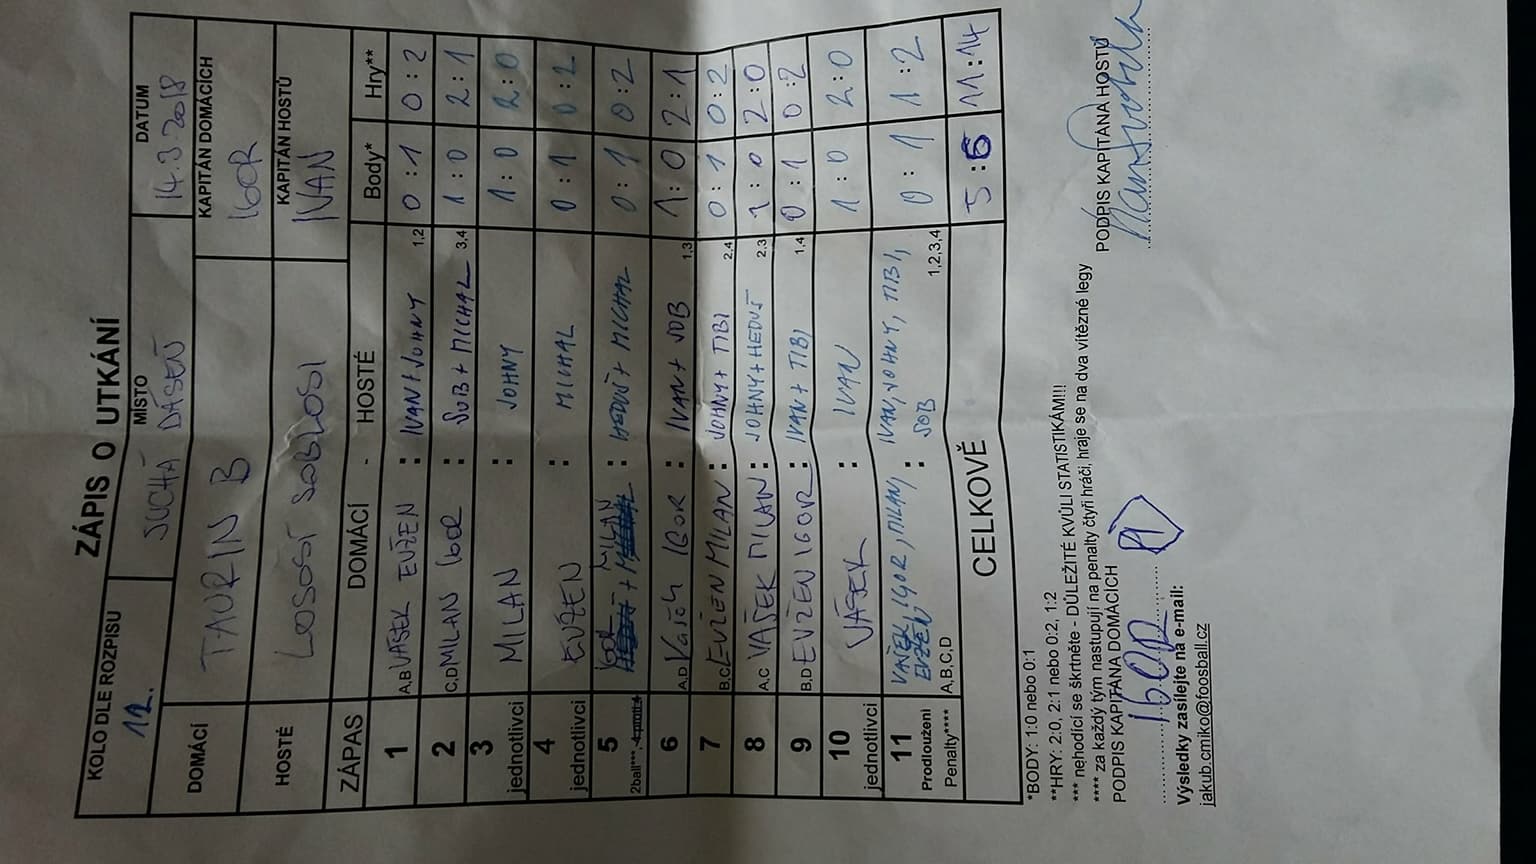 ZÁPIS O UTKÁNÍ
KOLO DLE ROZPISU MÍSTO DATUM
12. SUCHÁ DÁSEŇ 14.3.2018
DOMÁCÍ TAURIN B KAPITÁN DOMÁCÍCH IGOR
HOSTÉ LOSOSÍ SOBLOSI KAPITÁN HOSTŮ IVAN
ZÁPAS DOMÁCÍ - HOSTÉ Body* Hry**
1 A,B VAŠEK EVŽEN : IVAN + JOHNY 1,2 0:1 0:2
2 C,D MILAN IGOR : SOB + MICHAL 3,4 1:0 2:1
3 jednotlivci MILAN : JOHNY 1:0 2:0
4 jednotlivci EVŽEN : MICHAL 0:1 0:2
5 2ball***, 4 proti 4 IGOR + MILAN : HEDUŠ + MICHAL 0:1 0:2
6 A,D Vašek IGOR : IVAN + SOB 1,3 1:0 2:1
7 B,C EVŽEN MILAN : JOHNY + TIBI 2,4 0:1 0:2
8 A,C VAŠEK MILAN : JOHNY + HEDUŠ 2,3 1:0 2:0
9 B,D EVŽEN IGOR : IVAN + TIBI 1,4 0:1 0:2
10 jednotlivci VAŠEK : IVAN 1:0 2:0
11 VAŠEK, IGOR, MILAN, : IVAN, JOHNY, TIBI, 0:1 1:2
Prodloužení EVŽEN SOB
Penalty**** A,B,C,D 1,2,3,4
CELKOVĚ 5:6 11:14
*BODY: 1:0 nebo 0:1
**HRY: 2:0, 2:1 nebo 0:2, 1:2
*** nehodící se škrtněte - DŮLEŽITÉ KVŮLI STATISTIKÁM!!!
**** za každý tým nastupují na penalty čtyři hráči, hraje se na dva vítězné legy
PODPIS KAPITÁNA DOMÁCÍCH PODPIS KAPITÁNA HOSTŮ
IGOR
Výsledky zasílejte na e-mail:
jakub.cmiko@foosball.cz